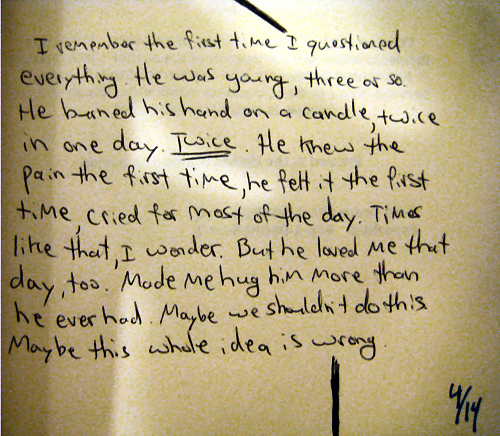 I remember the first time I questioned
everything. He was young, three or so.
He burned his hand on a candle, twice
in one day. Twice. He knew the
pain the first time, he felt it the first
time, cried for most of the day. Times
like that, I wonder. But he loved me that
day, too. Made me hug him more than
he ever had. Maybe we shouldn't do this.
Maybe this whole idea is wrong.
4/14